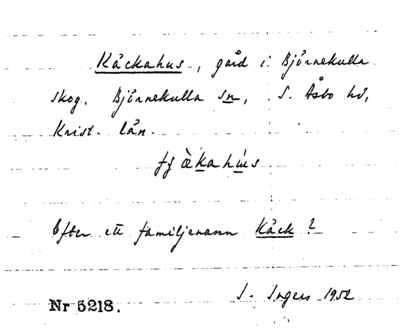 Käckahus, gård i Björnekulla
skog. Björnekulla sn, S. Åsbo hd,
Krist. län.
Efter ett familjenamn Käck?
I. Ingers 1952
Nr 5218.